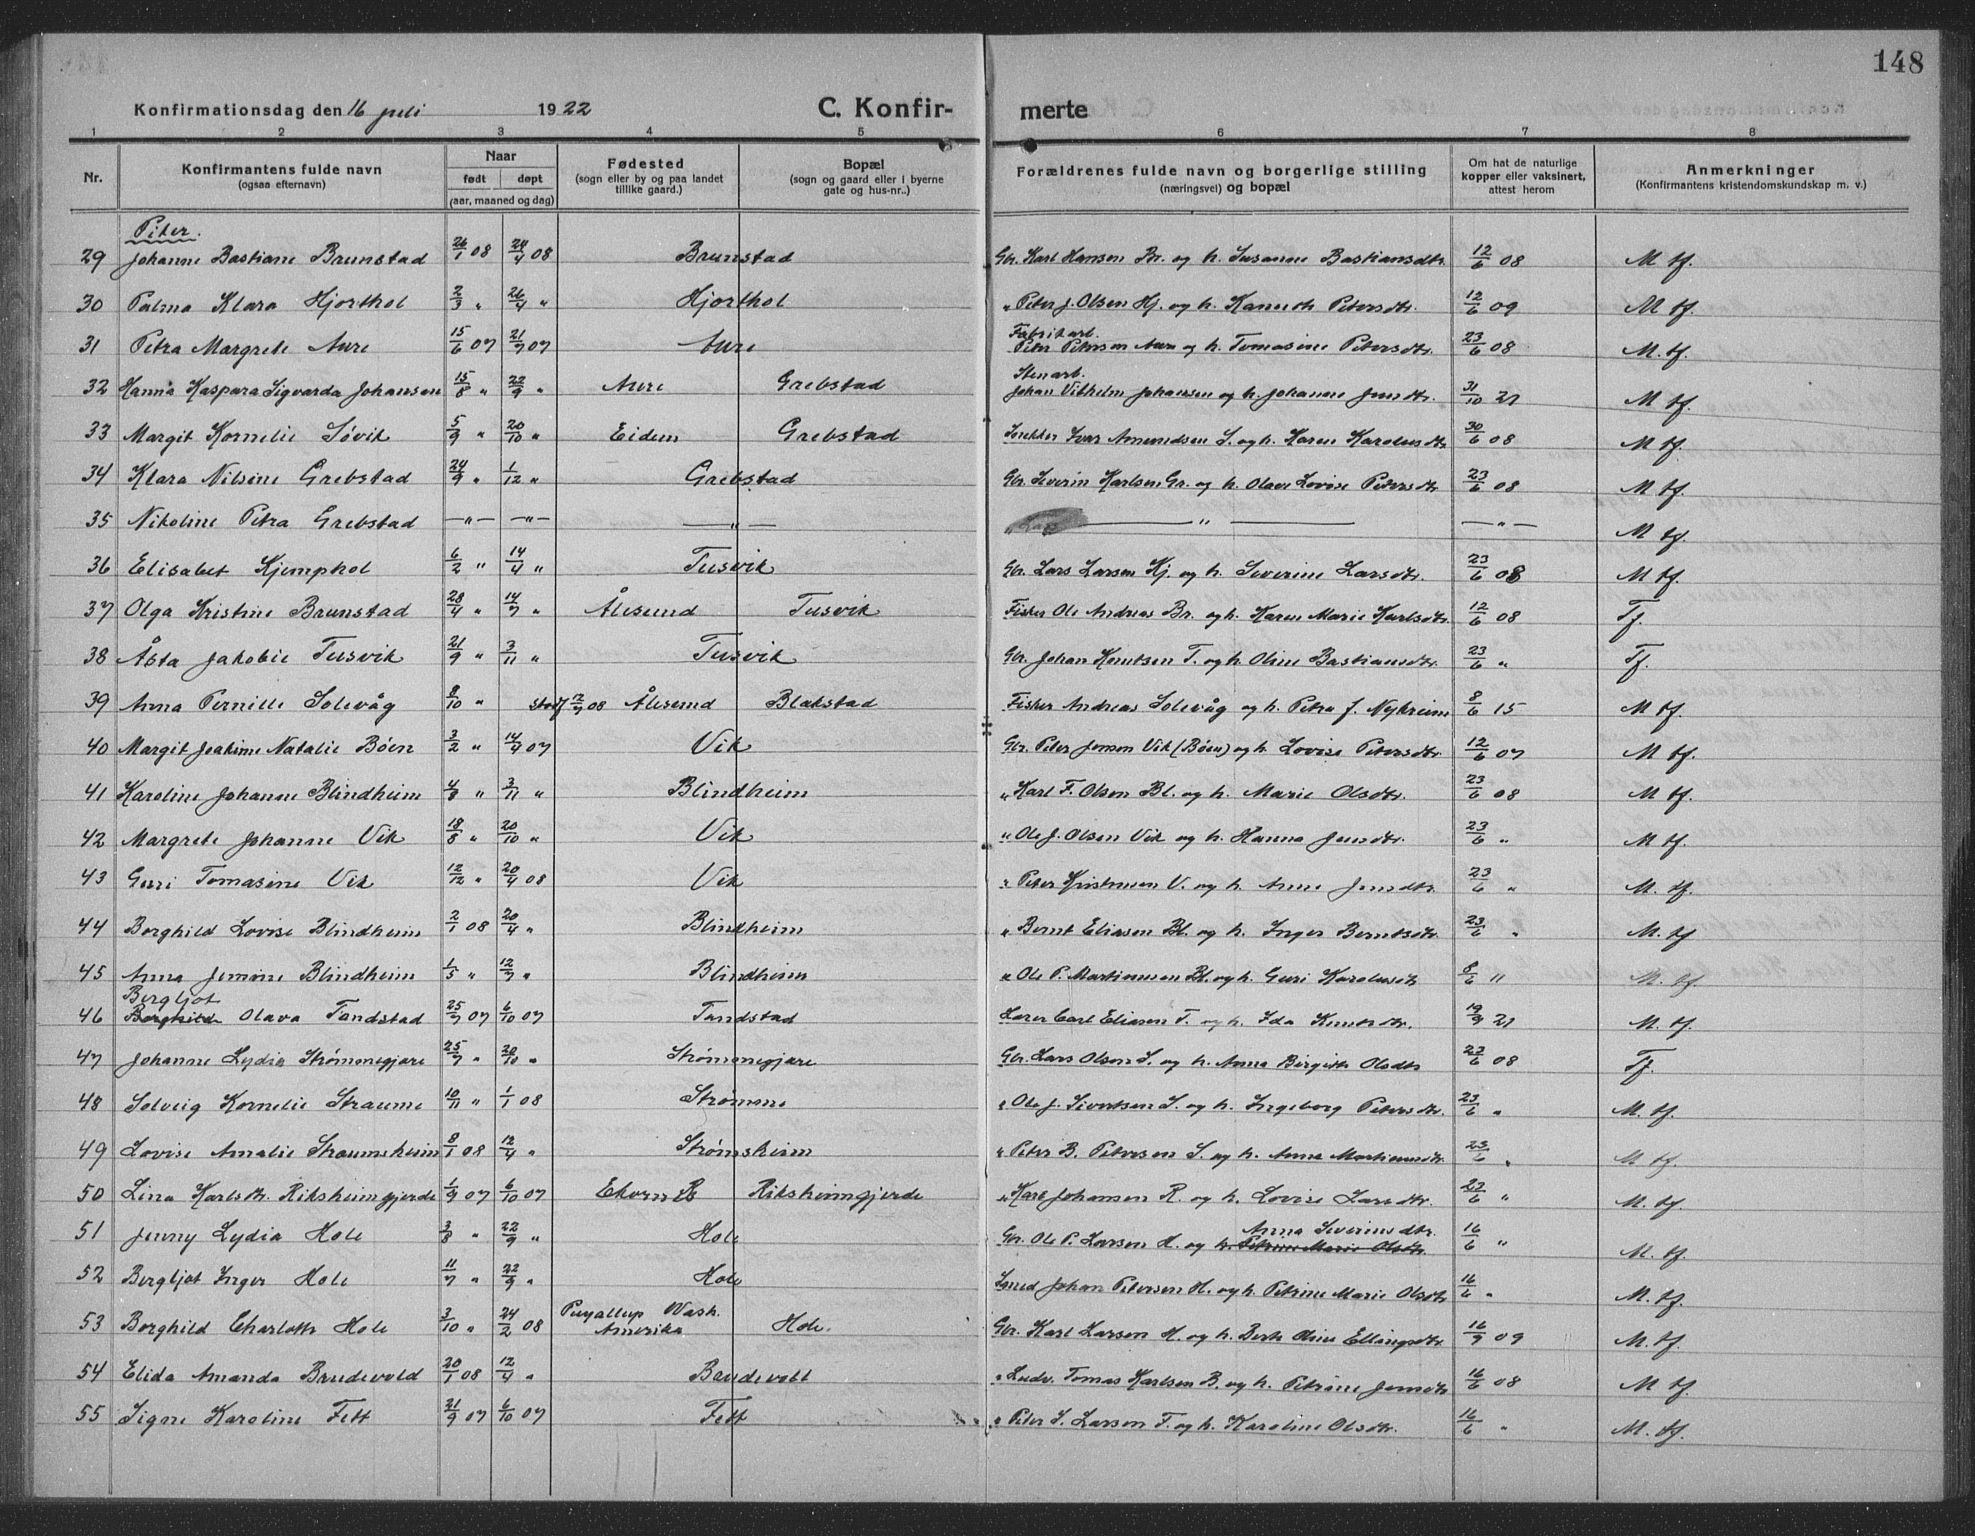 148
Konfirmationsdag den 16 juli 1922 C. Konfir- merte
1 2 3 4 5 6 7 8
Nr. Konfirmantens fulde navn (ogsaa efternavn) Naar født døpt (aar, maaned og dag) Fødested (sogn eller by og paa landet tillike gaard.) Bopæl (sogn og gaard eller i byerne gate og hus-nr.) Forældrenes fulde navn og borgerlige stilling (næringsvei) og bopæl Om hat de naturlige kopper eller vaksinert, attest herom Anmerkninger (Konfirmantens kristendomskundskap m. v.)
Piker.
29 Johanne Bastiane Brunstad 26/1 08 24/4 08 Brunstad Gbr. Karl Hansen Br. og h. Susanne Bastiansdtr. 12/6 08 M tf.
30 Palma Klara Hjorthol 2/3 " 26/4 " Hjorthol " Peter J. Olsen Hj. og h. Petersdtr. 12/6 09 M tf.
31 Petra Margrete Aure 15/6 07 21/7 07 Aure Fabrikarb. Peter Peterson Aure og h. Tomasine Petersdtr. 23/6 08 M. tf.
32 Hanna Kaspara Sigvarda Johansen 15/8 " 22/9 " Aure Grebstad Stenarb. Johan Vilhelm Johansen og h. Johanne Jensdtr. 31/10 21 M tf.
33 Margit Kornelie Søvik 5/9 " 20/10 " Eidem Grebstad Snekker Ivar Amundsen S. og h. Karen Karolusdtr 30/6 08 M tf.
34 Klara Nilsine Grebstad 24/9 " 1/12 " Grebstad Gbr. Severin Karlsen Gr. og h. Olave Lovise Petersdtr 23/6 08 M tf.
35 Nikoline Petra Grebstad — " — — " — — " — — " — — " — M tf.
36 Elisabet Kjemphol 6/2 " 14/4 " Tusvik Gbr. Lars Larsen Kj. og h. Severine Larsdtr. 23/6 08 M tf.
37 Olga Kristine Brunstad 28/4 " 14/7 " Ålesund Tusvik Fisker Ole Andreas Br. og h. Karen Marie Karlsdtr. 12/6 08 Tf.
38 Åsta Jakobie Tusvik 21/9 " 3/11 " Tusvik Gbr. Johan Knutsen T. og h. Oline Bastiansdtr. 23/6 " Tf.
39 Anna Pernille Solevåg 8/10 " 12/9 08 Ålesund Blakstad Fisker Andreas Solevåg og h. Petra J. Nykreim 8/6 15 M tf.
40 Margit Joakime Natalie Böen 3/2 " 14/4 07 Vik Gbr. Peter Jenson Vik (Böen) og h. Lovise Petersdtr. 12/6 07 M tf.
41 Karoline Johanne Blindheim 4/8 " 3/11 " Blindheim " Karl F. Olson Bl. og h. Marie Olsdtr. 23/6 08 M tf.
42 Margrete Johanne Vik 18/8 " 20/10 " Vik " Ole J. Olsen Vik og h. Hanna Jensdtr. 23/6 " M tf.
43 Guri Tomasine Vik 12/12 " 20/4 08 Vik " Peter Kristensen V. og h. Anne Jensdtr. 23/6 " M. tf.
44 Borghild Lovise Blindheim 2/1 08 20/4 " Blindheim " Bernt Eliasen Bl. og h. Inger Berntsdtr. 23/6 " M. tf
45 Anna Jensine Blindheim 1/5 " 12/7 " Blindheim " Ole P. Martinusen Bl. og h. Guri Karolusdtr 8/6 " M. tf.
Bergljot
46 Borghild Olava Tandstad 25/7 07 6/10 07 Tandstad Lærer Carl Eliasen T. og h. Ida Knutsdtr. 19/9 21 M. tf.
47 Johanne Lydia Strømmegjære 25/7 " 20/10 " Strømmegjære Gbr. Lars Olson S. og h. Anna Birgitte Olsdtr 23/6 08 Tf.
48 Solveig Kornelie Straume 10/11 " 1/1 08 Strømme " Ole J. Sivertsen S. og h. Ingeborg Petersdtr. 23/6 " M. tf.
49 Lovise Amalie Straumsheim 8/1 08 12/4 " Strømsheim " Peter B. Petersen S. og h. Anna Martinusdtr 23/6 " M tf.
50 Lina Karlsdtr. Riksheimgjerde 1/9 07 6/10 07 Ekornes Riksheimgjerde " Karl Johansen R. og h. Lovise Larsdtr. 23/6 " M. tf.
51 Jenny Lydia Hole 3/8 " 22/9 " Hole Gbr. Ole P. Larson H. og h. Petrine Marie Olsdtr. Anna Severinsdtr. 16/6 " M. tf.
52 Bergljot Inger Hole 11/7 " 22/9 " Hole Smed Johan Petersen H. og h. Petrine Marie Olsdtr 16/6 " M. tf.
53 Borghild Charlotte Hole 3/10 " 24/2 08 Puyallup Wash. Amerika Hole. Gbr. Karl Larsen H. og h. Berte Oline Ellingsdtr 16/9 09 M. tf.
54 Elida Amanda Brudevold 20/1 08 12/4 " Brudevolt " Ludv. Tomas Karlsen B. og h. Petrine Jensdtr 16/6 08 M tf.
55 Signe Karoline Fett 21/9 07 6/10 07 Fett " Peter S. Larson F. og h. Karoline Olsdtr. 16/6 " M. tf.